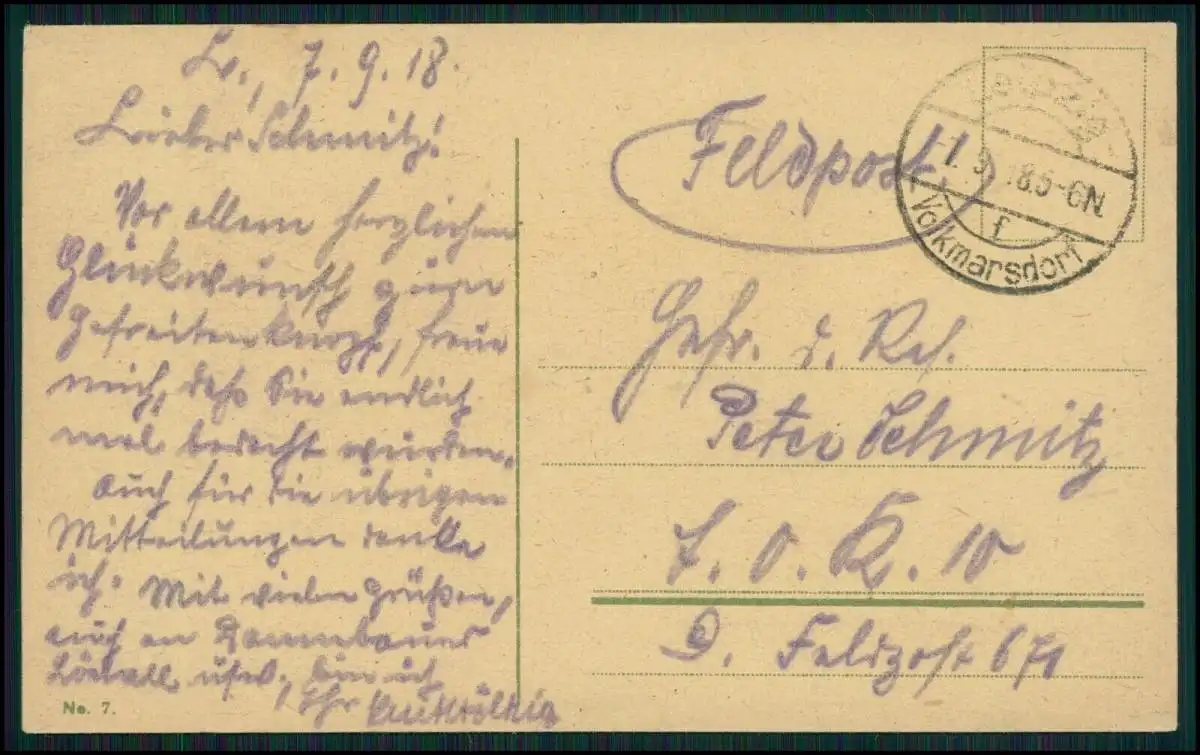 L., 7.9.18.
Lieber Schmitz!
Vor allem herzlichen
Glückwunsch zum
Gefreitenknopf, freue
mich, daß Sie endlich
mal bedacht wurden.
Auch für die übrigen
Mitteilungen danke
ich. Mit vielen Grüßen,
auch an Dannebauer
usw., bin ich
Ihr
No. 7.
Feldpost
Leipzig
-7.9.18.5-6N.
f
Volkmarsdorf
Gefr. d. Res.
Peter Schmitz
A. O. K. 10
D. Feldpost 671